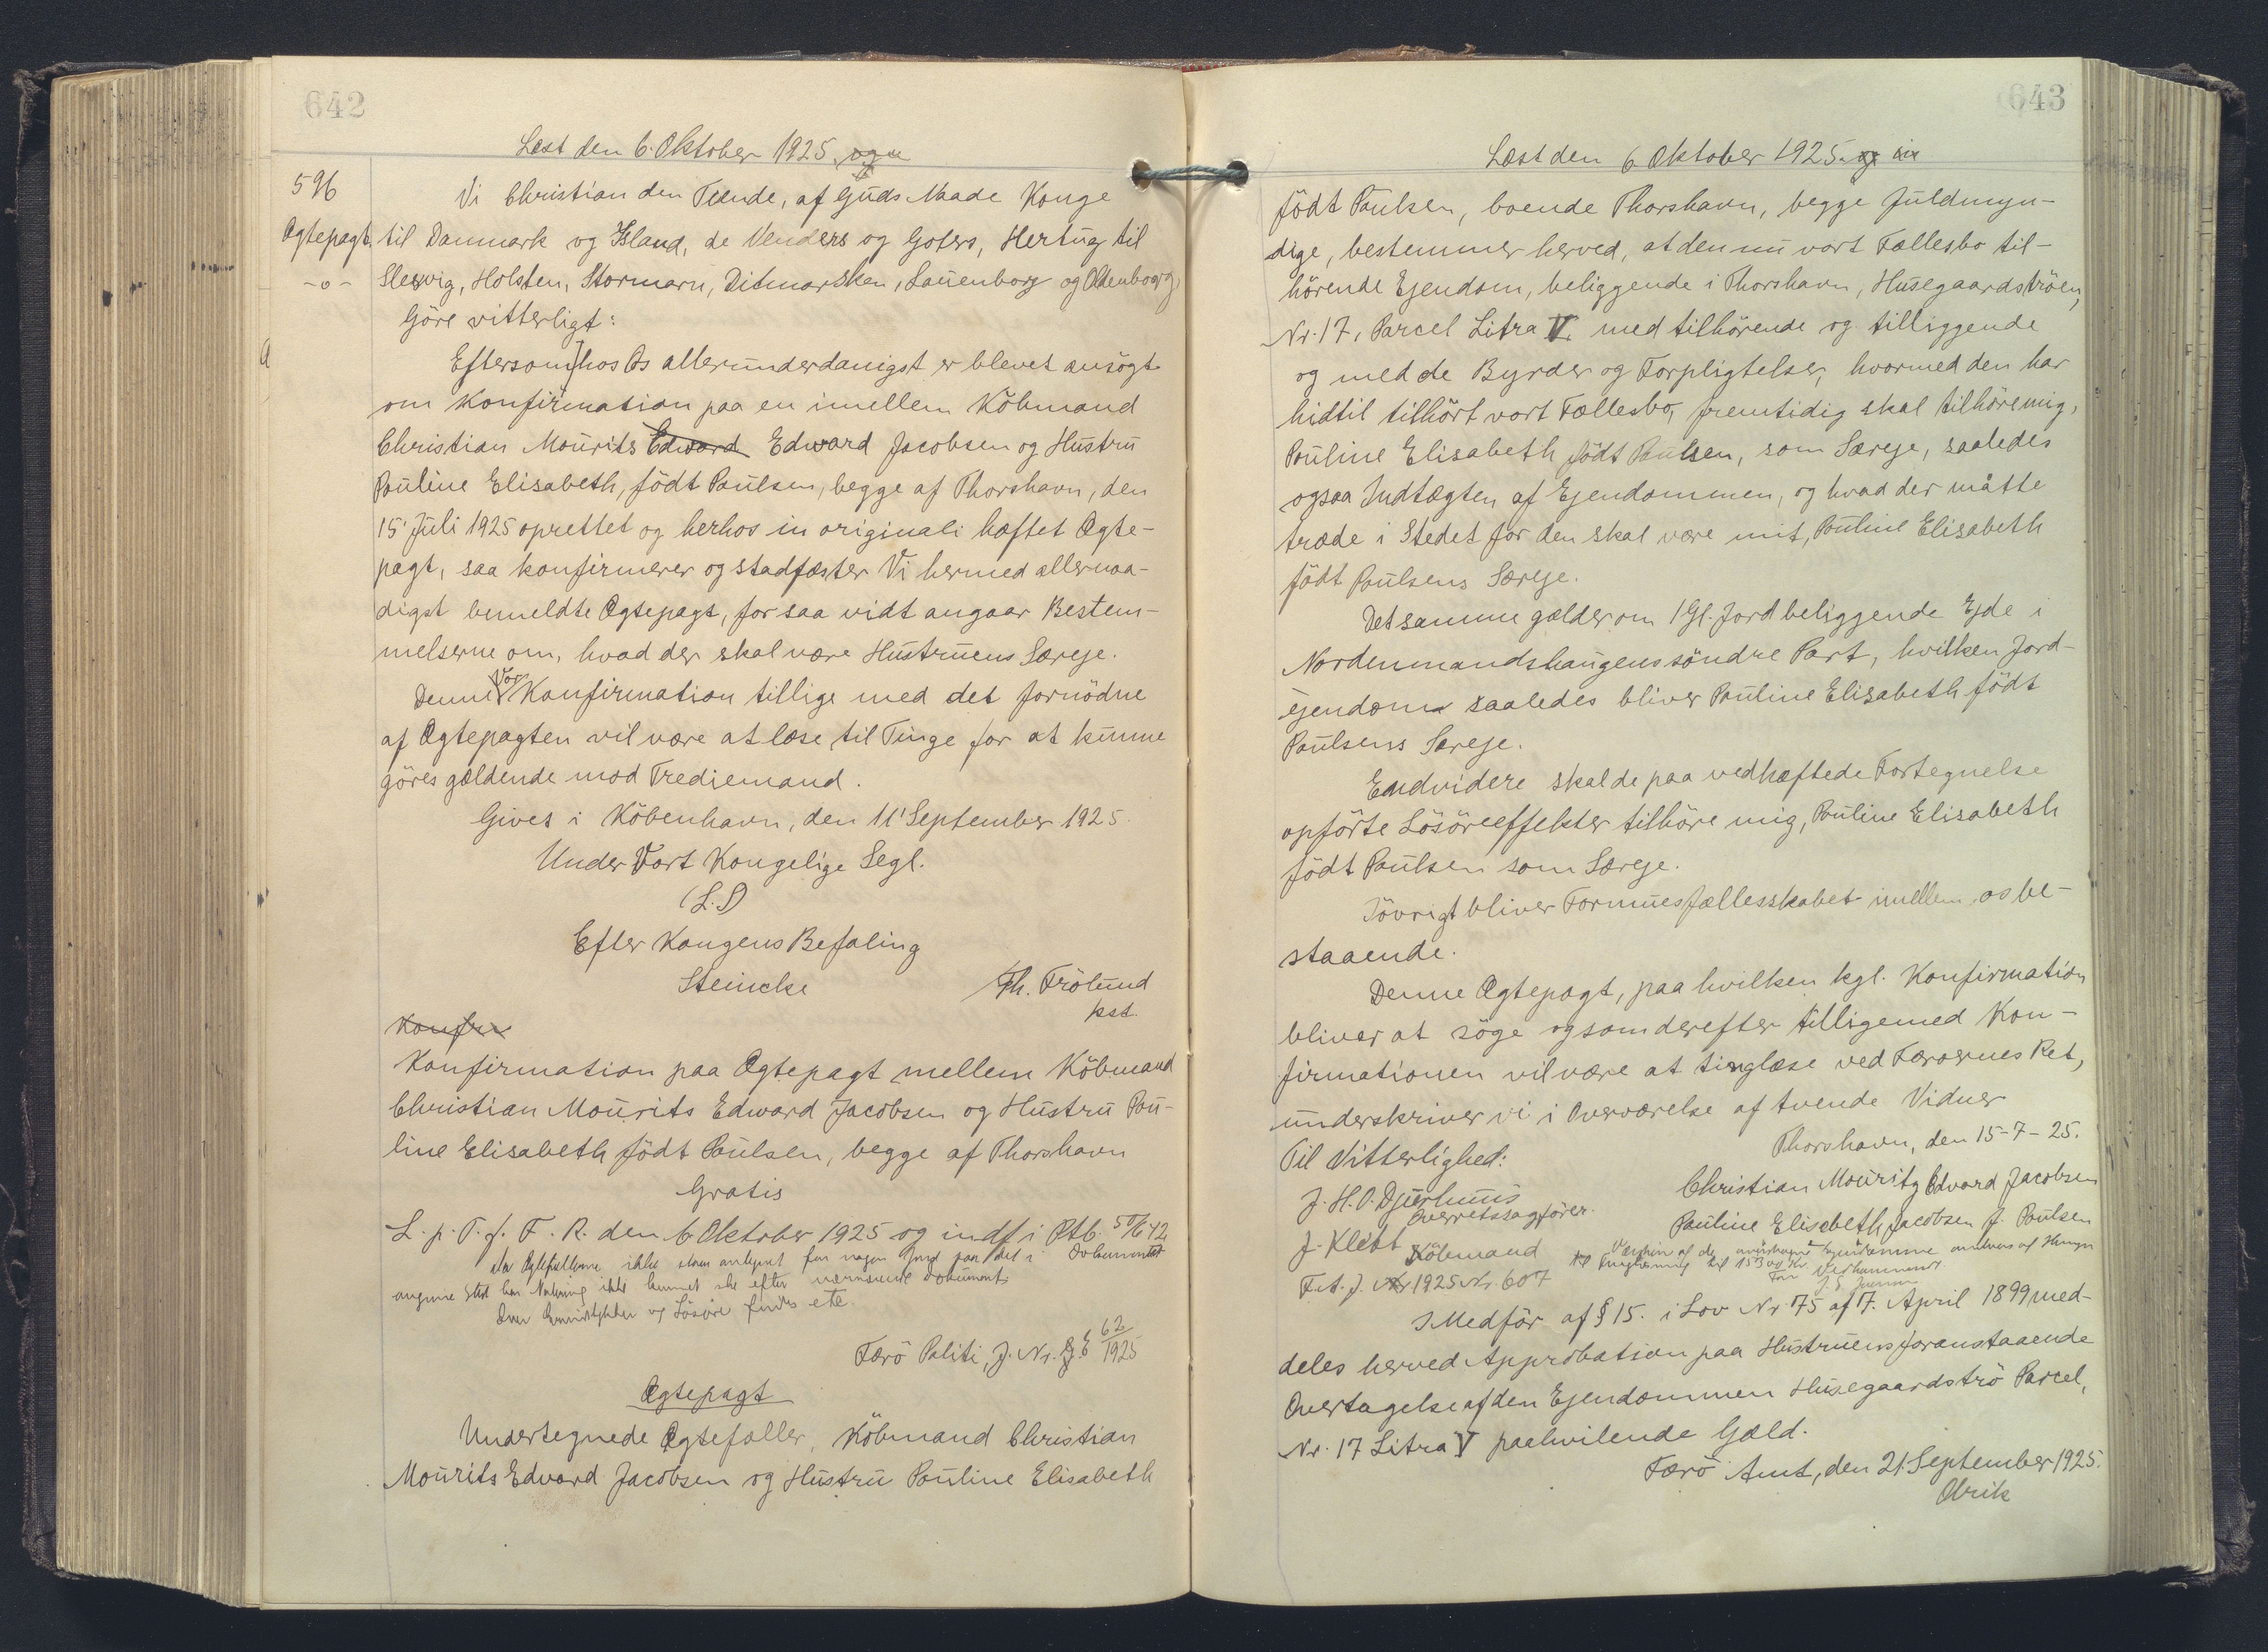 642
Læst den 6. Oktober 1925.
596
Ægtepagt.
-o-
Vi Christian den Tiende, af Guds Naade Konge
til Danmark og Island, de Venders og Goters, Hertug til
Slesvig, Holsten, Stormarn, Ditmarsken, Lauenborg og Oldenborg
Göre vitterligt:
Eftersom hos Os allerunderdanigst er blevet ansögt
om Konfirmation paa en imellem Köbmand
Christian Mourits Edward Edward Jacobsen og Hustru
Pouline Elisabeth, födt Poulsen, begge af Thorshavn, den
15' Juli 1925 oprettet og herhos in originali hæftet Ægte-
pagt, saa konfirmerer og stadfæster Vi hermed allernaa-
digst bemeldte Ægtepagt, for saa vidt angaar Bestem-
melserne om, hvad der skal være Hustruens Særeje.
Denne Vor Konfirmation tillige med det fornödne
af Ægtepagten vil være at læse til Tinge for at kunne
göres gældende mod Trediemand.
Givet i Köbenhavn, den 11' September 1925.
Under Vort Kongelige Segl.
(L.S)
Efter Kongens Befaling
Steincke
Th. Frölund
kst.
Konfir
Konfirmation paa Ægtepagt mellem Köbmand
Christian Mourits Edward Jacobsen og Hustru Pou-
line Elisabeth födt Poulsen, begge af Thorshavn
Gratis
L. p. T. f. F. R. den 6. Oktober 1925 og indf i Ptb.
da Ægtefællerne ikke staar antegnet for nogen Jord paa det i Dokumentet
angivne Sted har Notering ikke kunnet ske efter nærværende Dokument.
Over og Lösöre findes ete.
Færö Politi, J. Nr. 62/1925
Ægtepagt
Undertegnede Ægtefæller, Köbmand Christian
Mourits Edvard Jacobsen og Hustru Pouline Elisabeth
643
Læst den 6 Oktober 1925.
födt Poulsen, boende Thorshavn, begge fuldmyn-
dige, bestemmer herved, at den nu vort Fællesbo til-
hörende Ejendom, beliggende i Thorshavn, Husegaardströen,
Nr. 17, Parcel Litra V. med tilhörende og tilliggende
og med de Byrder og Forpligtelser, hvormed den har
hidtil tilhört vort Fællesbo, fremtidig skal tilhöre mig,
Pouline Elisabeth födt Poulsen, som Særeje, saaledes
ogsaa Indtægten af Ejendommen, og hvad der måtte
træde i Stedet for den skal være mit, Pouline Elisabeth
födt Poulsens Særeje.
Det samme gælder om 1 Gl. Jord beliggende Ejde i
Nordenmandshaugens söndre Part, hvilken Jord-
ejendom saaledes bliver Pouline Elisabeth födt
Poulsens Særeje.
Endvidere skal de paa vedhæftede Fortegnelse
opförte Lösöreeffekter tilhöre mig, Pouline Elisabeth
födt Poulsen som Særeje.
Iövrigt bliver Formuesfællesskabet imellem os be-
staaende.
Denne Ægtepagt, paa hvilken kgl. Konfirmation
bliver at söge og som derefter tilligemed Kon-
firmationen vil være at tinglæse ved Færöernes Ret,
underskriver vi i Overværelse af tvende Vidner
Thorshavn, den 15-7-25.
Til Vitterlighed:
Christian Mouritz Edvard Jacobsen
J. H. O. Djurhuus
Overretssagförer.
Pauline Elisabeth Jacobsen f. Poulsen
J. Klett Köbmand
Værdien af de Ejendomme
til Tinglæsning til 15300 Kr.
F. A. J. Nr 1925 Nr. 607
I Medför af § 15. i Lov Nr 75 af 7. April 1899 med-
deles herved Approbation paa Hustruens foranstaaende
Overtagelse af den Ejendommen Husegaardströ Parcel,
Nr. 17 Litra V paahvilende Gæld.
Færö Amt, den 21. September 1925.
Olrik